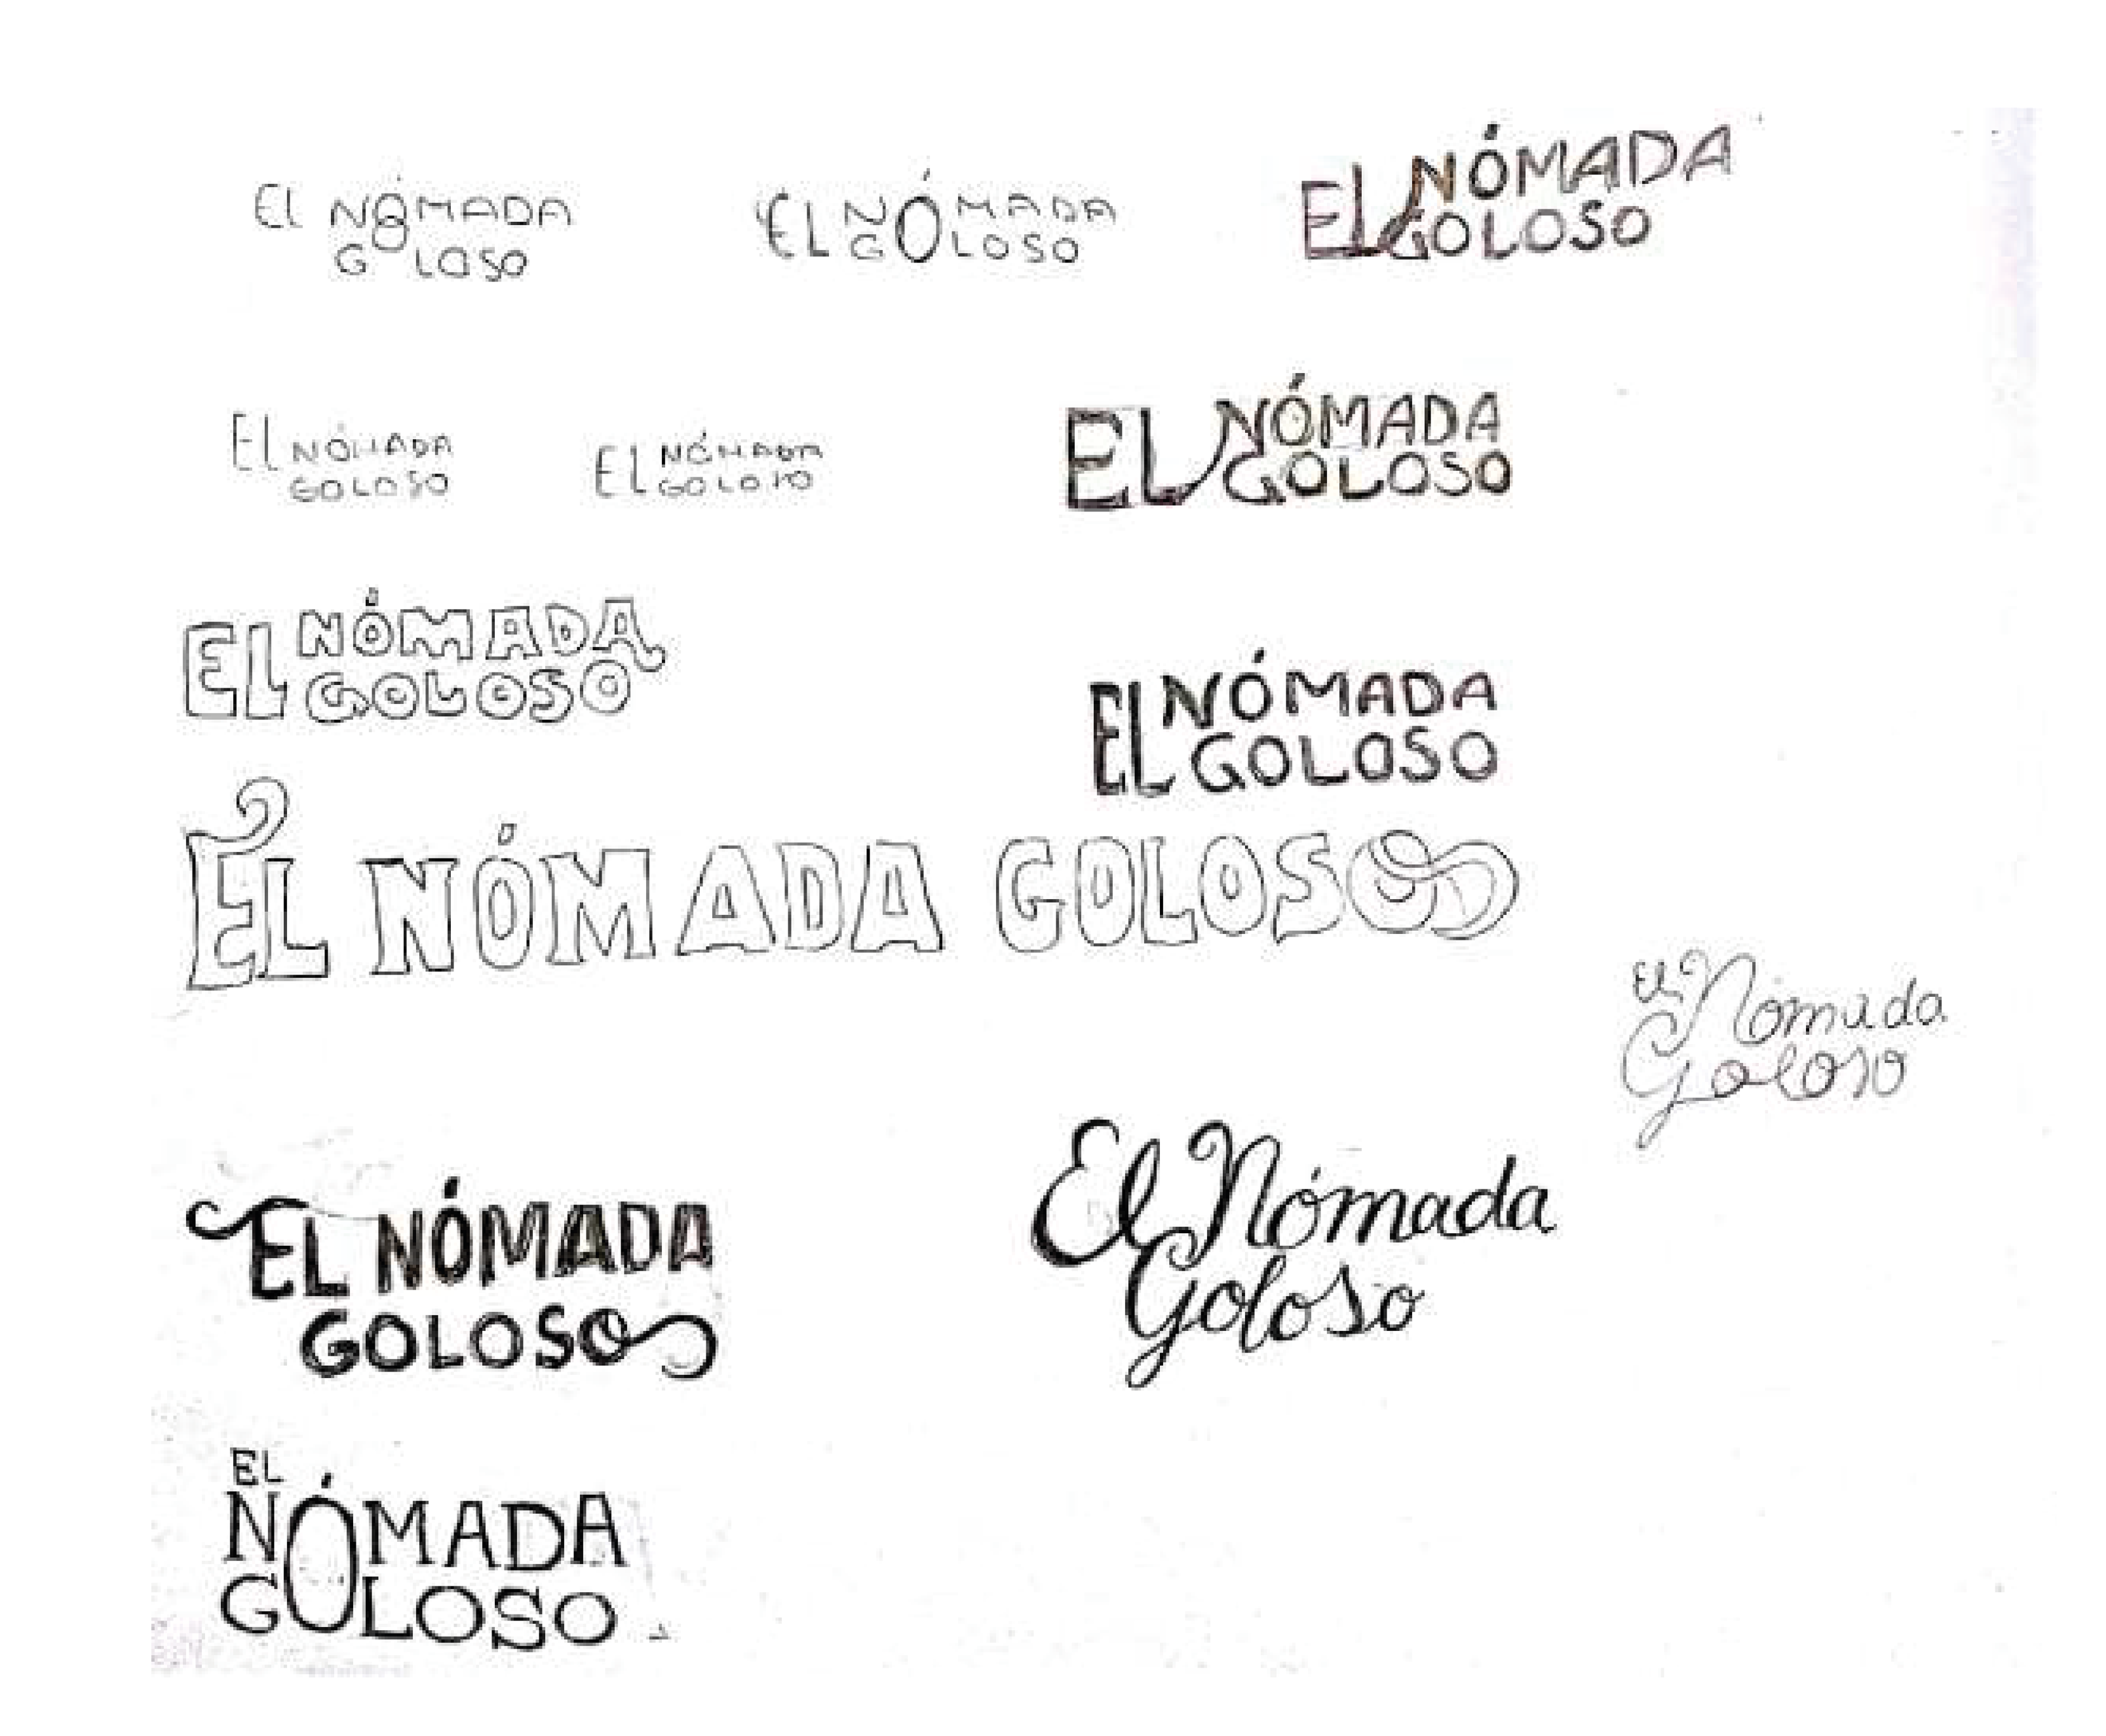 El NÓMADA
GOLOSO
EL NÓMADA
GOLOSO
EL NÓMADA
GOLOSO
El NÓMADA
GOLOSO
EL NÓMADA
GOLOSO
EL NÓMADA
GOLOSO
EL NÓMADA
GOLOSO
EL NÓMADA
GOLOSO
EL NÓMADA GOLOSO
El Nómada
Goloso
EL NÓMADA
GOLOSO
El Nómada
Goloso
EL
NÓMADA
GOLOSO